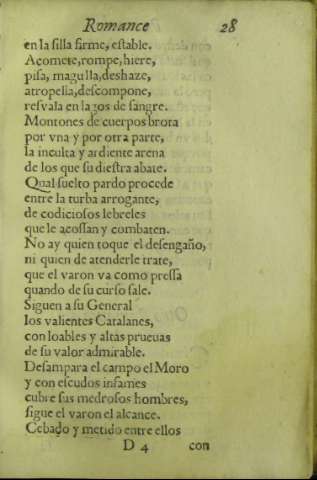 Romance 28
en la silla firme, estable.
Acomete, rompe, hiere,
pisa, magulla, deshaze,
atropella, descompone,
resvala en lagos de sangre.
Montones de cuerpos brota
por vna y por otra parte,
la inculta y ardiente arena
de los que su diestra abate.
Qual suelto pardo procede
entre la turba arrogante,
de codiciosos lebreles
que le acossan y combaten.
No ay quien toque el desengaño,
ni quien de atenderle trate,
que el varon va como pressa
quando de su curso sale.
Siguen a su General
los valientes Catalanes,
con loables y altas prueuas
de su valor admirable.
Desampara el campo el Moro
y con escudos infames
cubre sus medrosos hombres,
sigue el varon el alcance.
Cebado y metido entre ellos
D 4 con